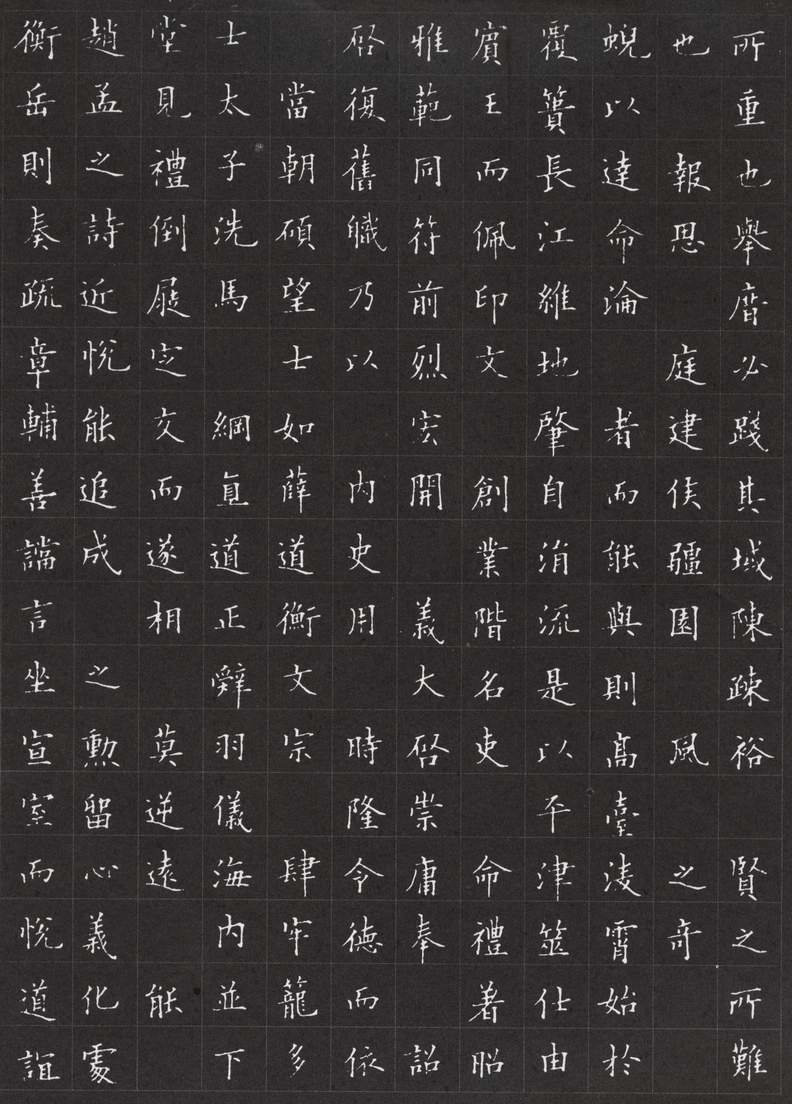 所重也舉厝必踐其域陳疎裕 賢之所難
也 報思 庭建侯疆園 風 之奇
蜺以達命淪 者而能與則高臺淩霄始於
覆簣長江維地肇自涓流是以平津筮仕由
賓王而佩印文 創業階名吏 命禮著昭
雅範同符前烈宏開 義大啓崇庸奉 詔
啓復舊職乃以 內史用 時隆令德而依
當朝碩望士如薛道衡文宗 肆牢籠多
士太子洗馬 綱直道正辭羽儀海內並下
堂見禮倒屣定交而遂相 莫逆遠 能
趙孟之詩近悅能追成 之勳留心義化處
衡岳則奏疏章輔善讜言坐宣室而悅道誼